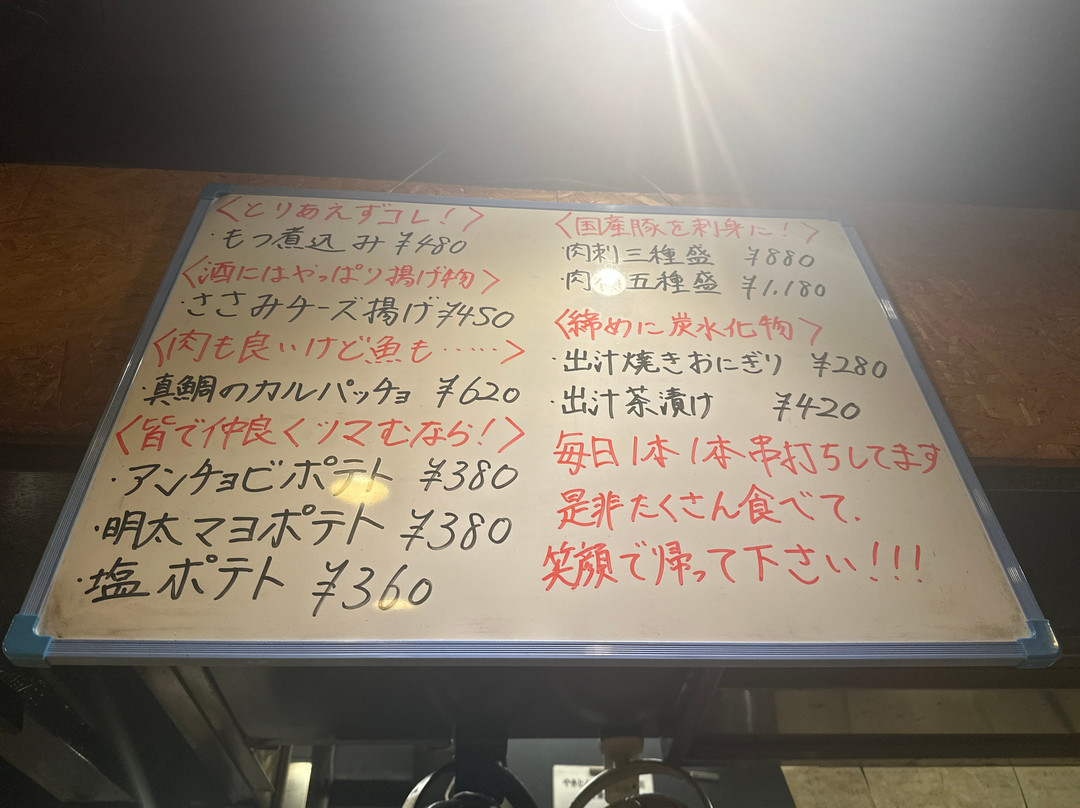 〈とりあえずコレ！〉
・もつ煮込み ¥480
〈酒にはやっぱり揚げ物〉
・ささみチーズ揚げ ¥450
〈肉も良いけど魚も……〉
・真鯛のカルパッチョ ¥620
〈皆で仲良くツマむなら！〉
・アンチョビポテト ¥380
・明太マヨポテト ¥380
・塩ポテト ¥360
〈国産豚を刺身に！〉
・肉刺三種盛 ¥880
・肉 五種盛 ¥1,180
〈締めに炭水化物〉
・出汁焼きおにぎり ¥280
・出汁茶漬け ¥420
毎日1本1本串打ちしてます
是非たくさん食べて、
笑顔で帰って下さい!!!